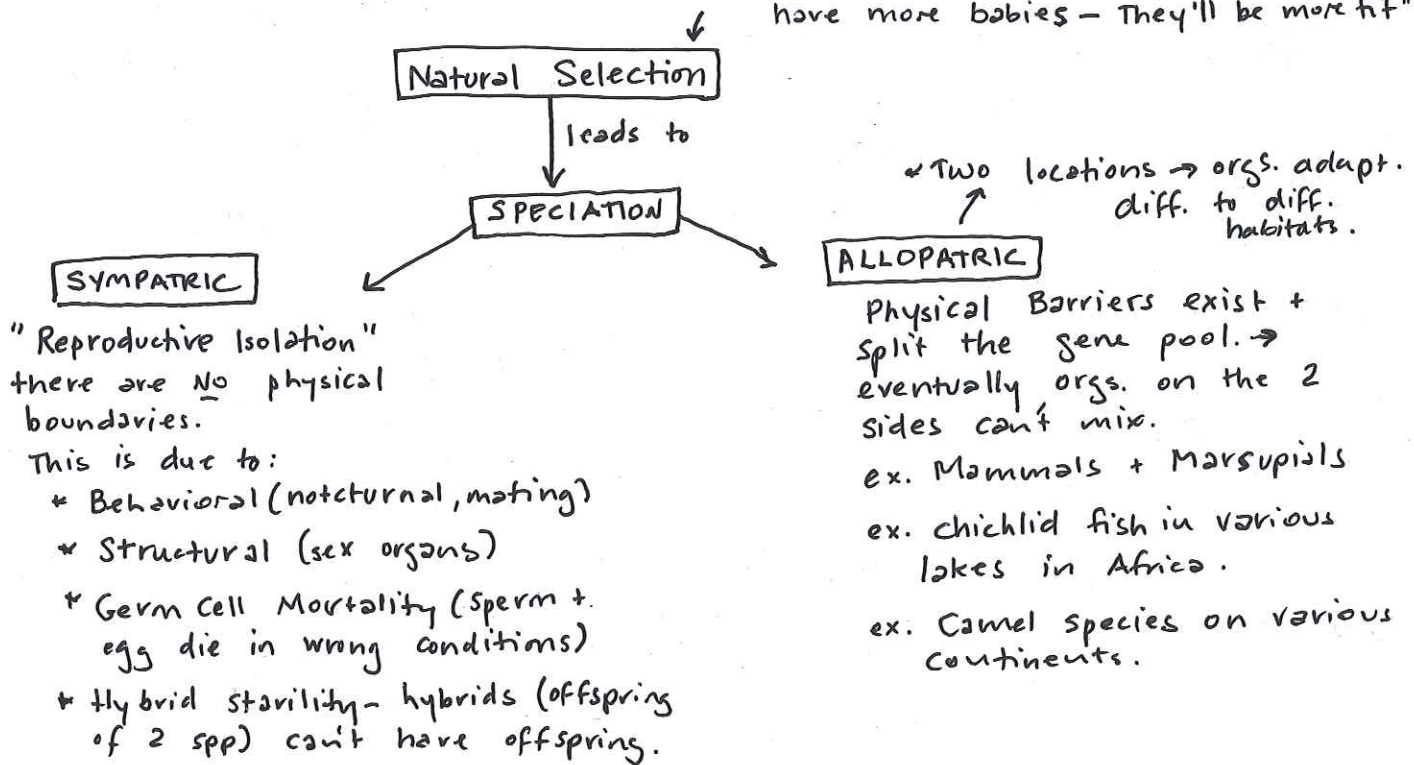 have more babies - They'll be more fit"
Natural Selection
leads to
* Two locations → orgs. adapt.
diff. to diff.
habitats.
SPECIATION
SYMPATRIC
"Reproductive Isolation"
there are NO physical
boundaries.
This is due to:
* Behavioral (notcturnal, mating)
* Structural (sex organs)
* Germ Cell Mortality (sperm +
egg die in wrong conditions)
* Hybrid starility - hybrids (offspring
of 2 spp) can't have offspring.
ALLOPATRIC
Physical Barriers exist +
split the gene pool. →
eventually orgs. on the 2
sides can't mix.
ex. Mammals + Marsupials
ex. chichlid fish in various
lakes in Africa.
ex. Camel species on various
continents.